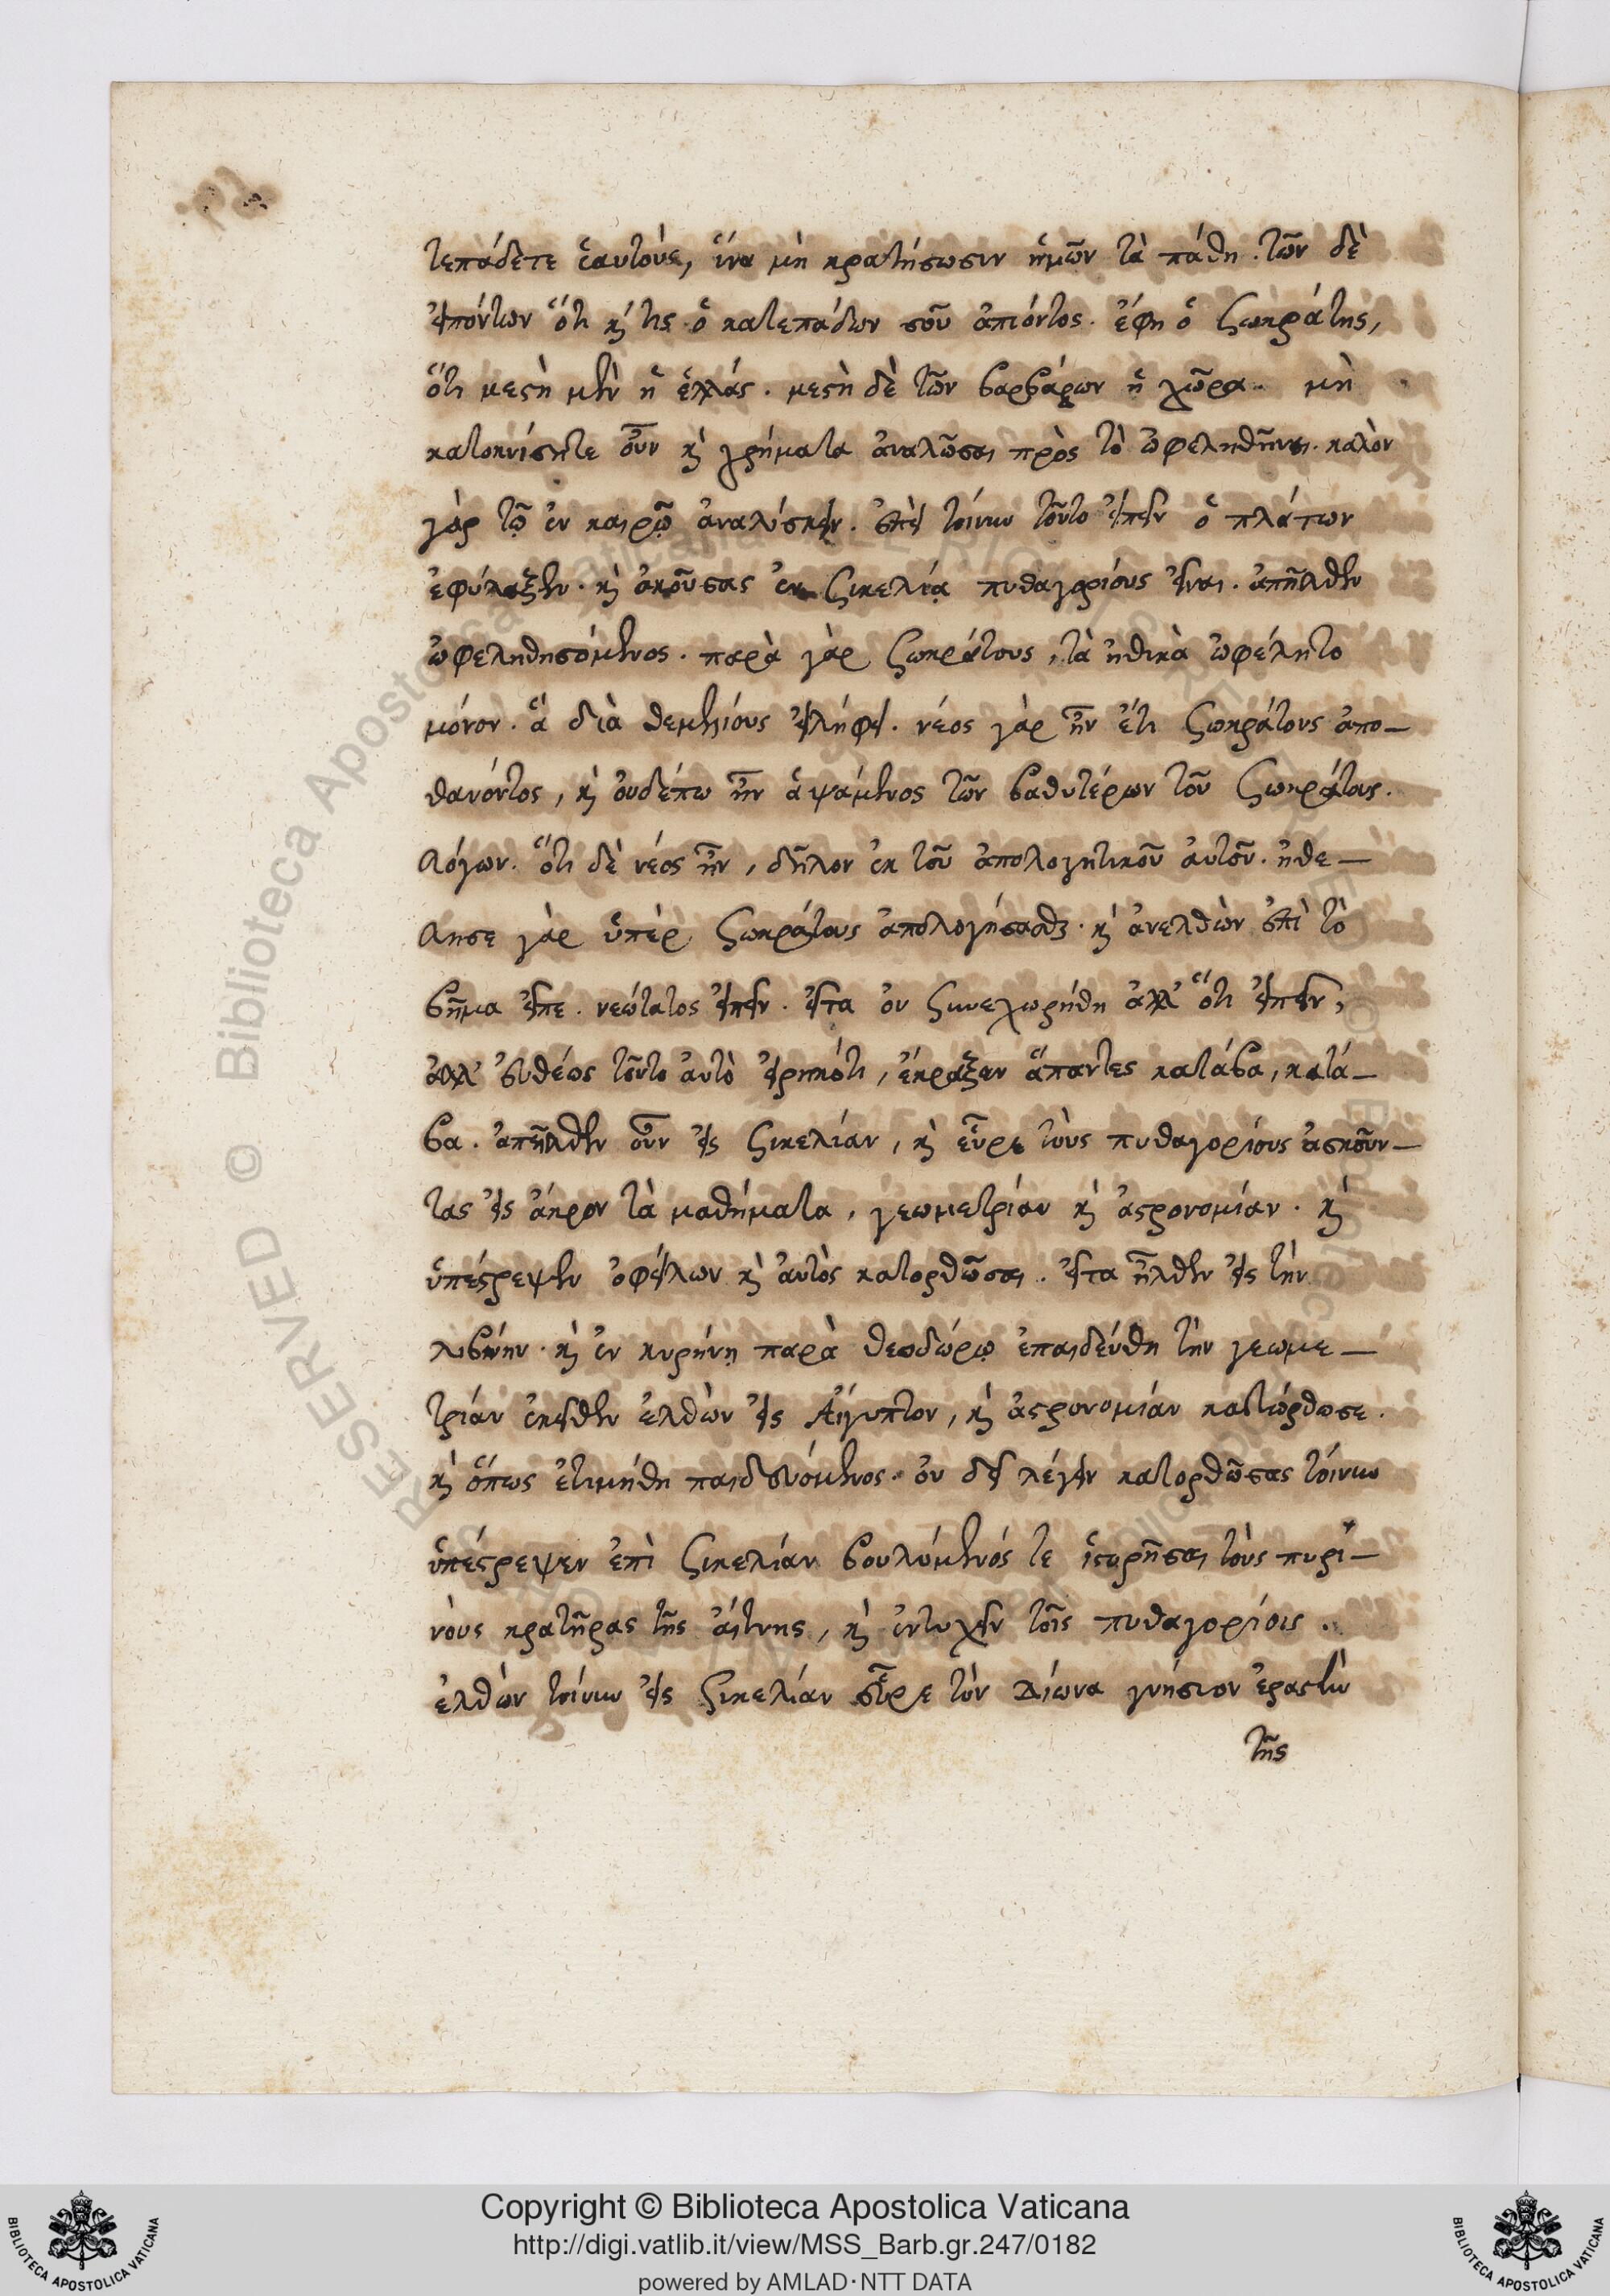 τεπάδετε ἑαυτούς, ἵνα μὴ κρατήσωσιν ἡμῶν τὰ πάθη. τῶν δὲ
εἰπόντων ὅτι κὴ τίς ὁ κατεπάδων σοῦ ἀπιόντος. ἔφη ὁ Σωκράτης,
ὅτι μεστὴ μὲν ἡ ἑλλάς. μεστὴ δὲ τῶν βαρβάρων ἡ χῶρα. μὴ
κατοκνίσητε οὖν καὶ χρήματα ἀναλῶσαι πρὸς τὸ ὠφεληθῆναι. καλὸν
γὰρ τῷ ἐν καιρῷ ἀναλίσκειν. ἐπεὶ τοίνυν τοῦτο εἶπεν ὁ πλάτων
ἐφύλαξεν. καὶ ἀκούσας ἐν Σικελίᾳ πυθαγορίους εἶναι. ἀπῆλθεν
ὠφεληθησόμενος. παρὰ γὰρ Σωκράτους, τὰ ἠθικὰ ὠφέλητο
μόνον. ἃ διὰ θεμελίους εἰλήφει. νέος γὰρ ἦν ἔτι Σωκράτους ἀπο–
θανόντος, καὶ οὐδέπω ἦν ἁψάμενος τῶν βαθυτέρων τοῦ Σωκράτους.
λόγων. ὅτι δὲ νέος ἦν, δῆλον ἐκ τοῦ ἀπολογητικοῦ αὐτοῦ. ἠθέ–
λησε γὰρ ὑπὲρ Σωκράτους ἀπολογήσασθαι. καὶ ἀνελθὼν ἐπὶ τὸ
βῆμα εἶπε. νεώτατος εἰπεῖν. εἶτα οὐ συνεχωρήθη ἀλλ' ὅτι εἰπεῖν,
ἀλλ' εὐθέως τοῦτο αὐτὸ εἰρηκότι, ἔκραξαν ἅπαντες κατάβα, κατά–
βα. ἀπῆλθεν οὖν εἰς Σικελίαν, καὶ εὗρε τοὺς πυθαγορίους ἀσκοῦν–
τας εἰς ἄκρον τὰ μαθήματα, γεωμετρίαν καὶ ἀστρονομίαν. καὶ
ὑπέστρεψεν ὀφείλων καὶ αὐτὸς κατορθῶσαι. εἶτα ἦλθεν εἰς τὴν
λιβύην. καὶ ἐν κυρήνῃ παρὰ θεοδώρῳ ἐπαιδεύθη τὴν γεωμε–
τρίαν ἐκεῖθεν ἐλθὼν εἰς Αἴγυπτον, καὶ ἀστρονομίαν κατώρθωσε.
καὶ ὅπως ἐτιμήθη παιδευόμενος. οὐ δεῖ λέγειν κατορθώσας τοίνυν
ὑπέστρεψεν ἐπὶ Σικελίαν βουλόμενός τε ἱστορῆσαι τοὺς πυρί–
νους κρατῆρας τῆς αἴτνης, καὶ ἐντυχεῖν τοῖς πυθαγορίοις.
ἐλθὼν τοίνυν εἰς Σικελίαν εὗρε τὸν Δίωνα γνήσιον ἐραστὴν
τῆς
Copyright © Biblioteca Apostolica Vaticana
http://digi.vatlib.it/view/MSS_Barb.gr.247/0182
powered by AMLAD·NTT DATA